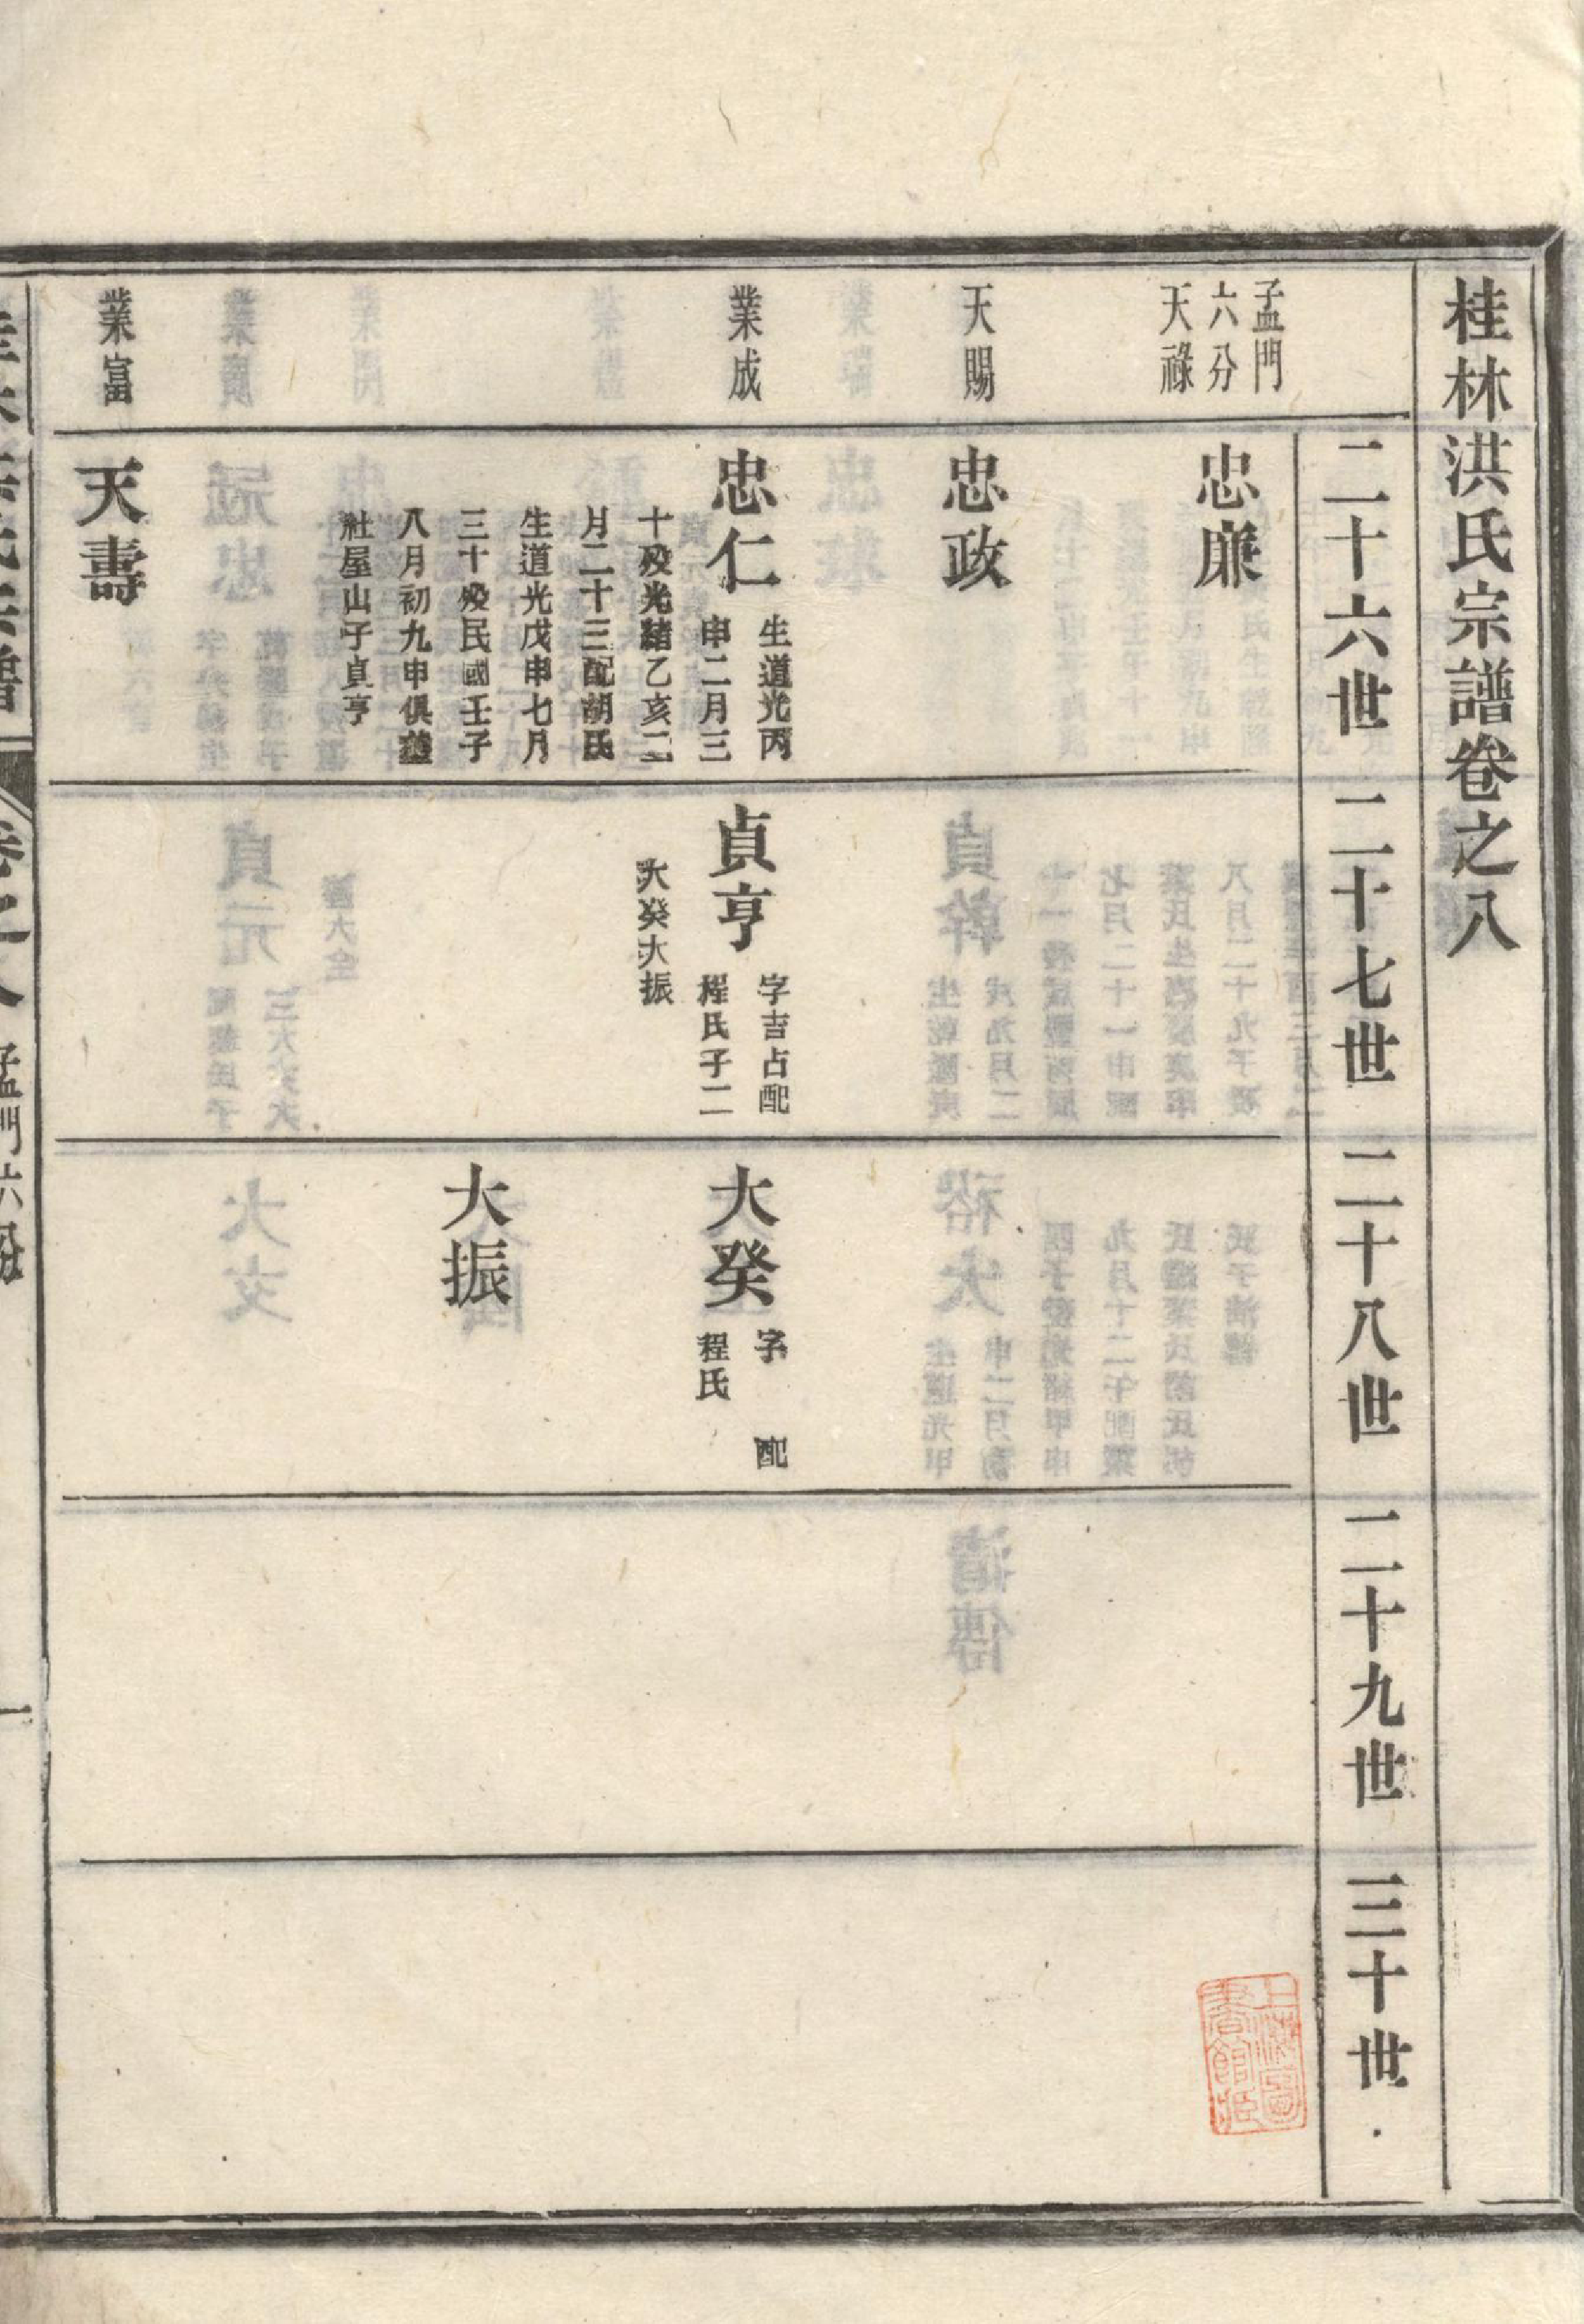 桂林洪氏宗譜卷之八
二十六世
二十七世
二十八世
二十九世
三十世
孟門
六分
天祿
忠廉
天賜
忠政
業成
忠仁
生道光丙
申二月三
十歿光緒乙亥二
月二十三配胡氏
生道光戊申七月
三十歿民國壬子
八月初九申俱葬
社屋山子貞亨
貞亨
字吉占配
程氏子二
大癸大振
大癸
字 配
程氏
大振
業富
天壽
卷之八
孟門六分
一
上海圖
書館藏